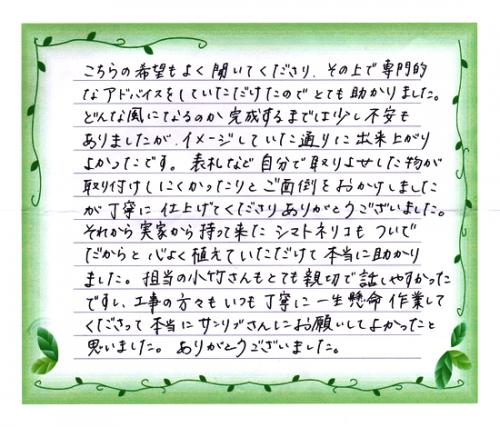 こちらの希望もよく聞いてくださり、その上で専門的
なアドバイスをしていただけたのでとても助かりました。
どんな風になるのか完成するまでは少し不安も
ありましたが、イメージしていた通りに出来上がり
よかったです。表札など自分で取りよせした物が
取り付けしにくかったりとご面倒をおかけしました
が丁寧に仕上げてくださりありがとうございました。
それから実家から持って来たシマトネリコもついで
だからと心よく植えていただけて本当に助かり
ました。担当の小竹さんもとても親切で話しやすかった
ですし、工事の方々もいつも丁寧に一生懸命作業して
くださって本当にサンリブさんにお願いしてよかったと
思いました。ありがとうございました。